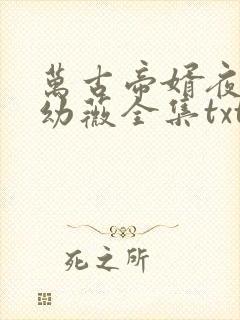 萬古帝婿夜
幼薇全集txt
死之所